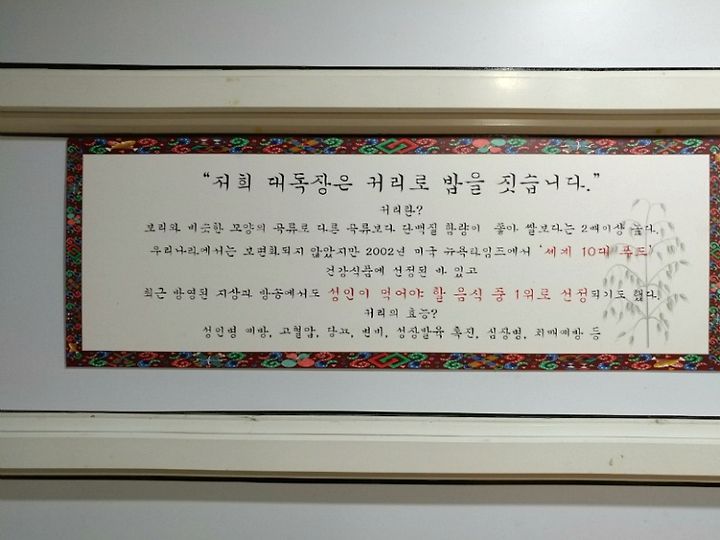 "저희 대독장은 귀리로 밥을 짓습니다."
귀리란?
보리와 비슷한 모양의 곡류로 다른 곡류보다 단백질 함량이 쌀보다는 2배이상 높다.
우리나라에서는 보편화되지 않았지만 2002년 미국 뉴욕타임즈에서 '세계 10대 푸드'
건강식품에 선정된 바 있고
최근 방영된 지상파 방송에서도 성인이 먹어야 할 음식 중 1위로 선정되기도 했다.
귀리의 효능?
성인병 예방, 고혈압, 당뇨, 변비, 성장발육 촉진, 심장병, 치매예방 등